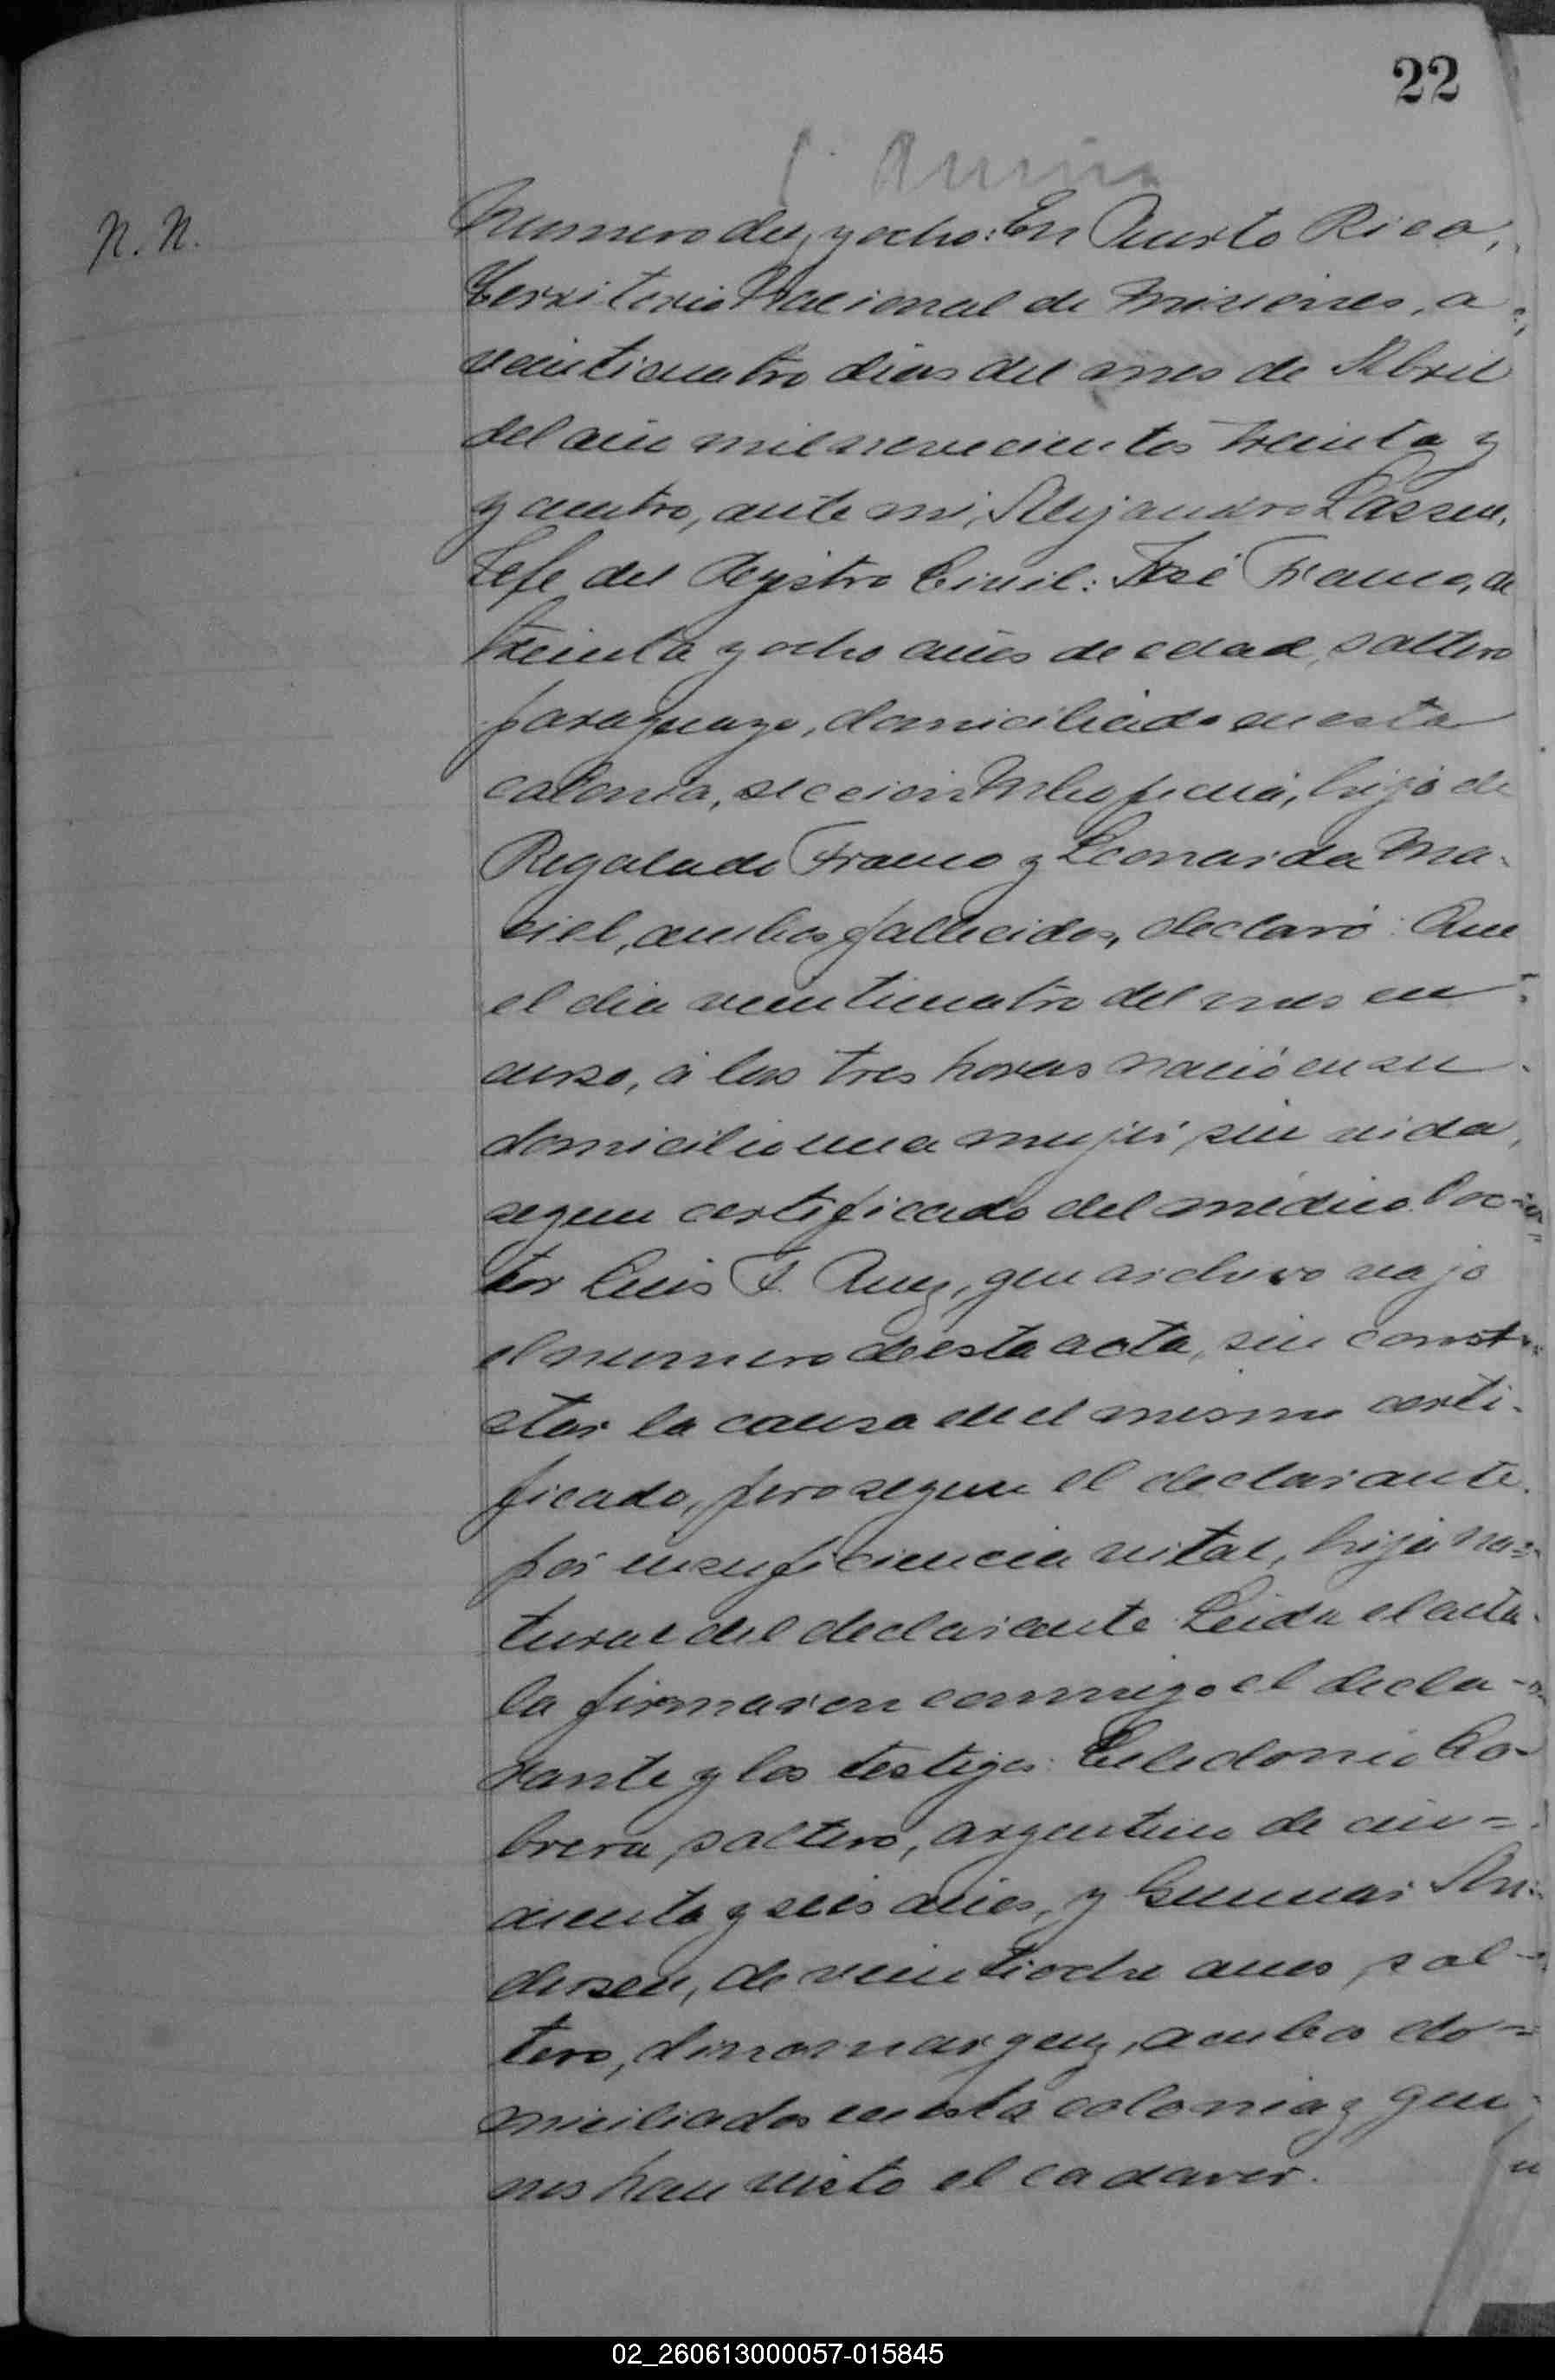 22
N. N.
Numero diez y ocho: En Puerto Rico,
Territorio Nacional de Misiones, a
veinticuatro dias del mes de Abril
del año mil novecientos treinta y
y cuatro, ante mi, Alejandro Lassen,
Jefe del Registro Civil: José Franco, de
treinta y ocho años de edad, soltero
paraguayo, domiciliado en esta
colonia, sección Mbopicuá, hijo de
Regalado Franco y Leonarda Ma-
ciel, ambos fallecidos, declaró: Que
el dia veinticuatro del mes en
curso, á las tres horas nació en su
domicilio una mujer, sin vida,
segun certificado del médico Doc-
tor Luis F. Ruez, que archivo vajo
el numero de esta acta, sin const
star la causa en el mismo certi-
ficado, pero segun el declarante
por insuficiencia vital, hija na-
tural del declarante Leida el acta
la firmaron conmigo el decla-
rante y los testigos: Celedonio Ca-
brera, soltero, argentino de cin-
cuenta y seis años, y Gunnar An-
dersen, de veintiocho anos, sol-
tero, dinamarquez, ambos do-
miciliados en esta colonia y quie
nes han visto el cadaver.
02_260613000057-015845